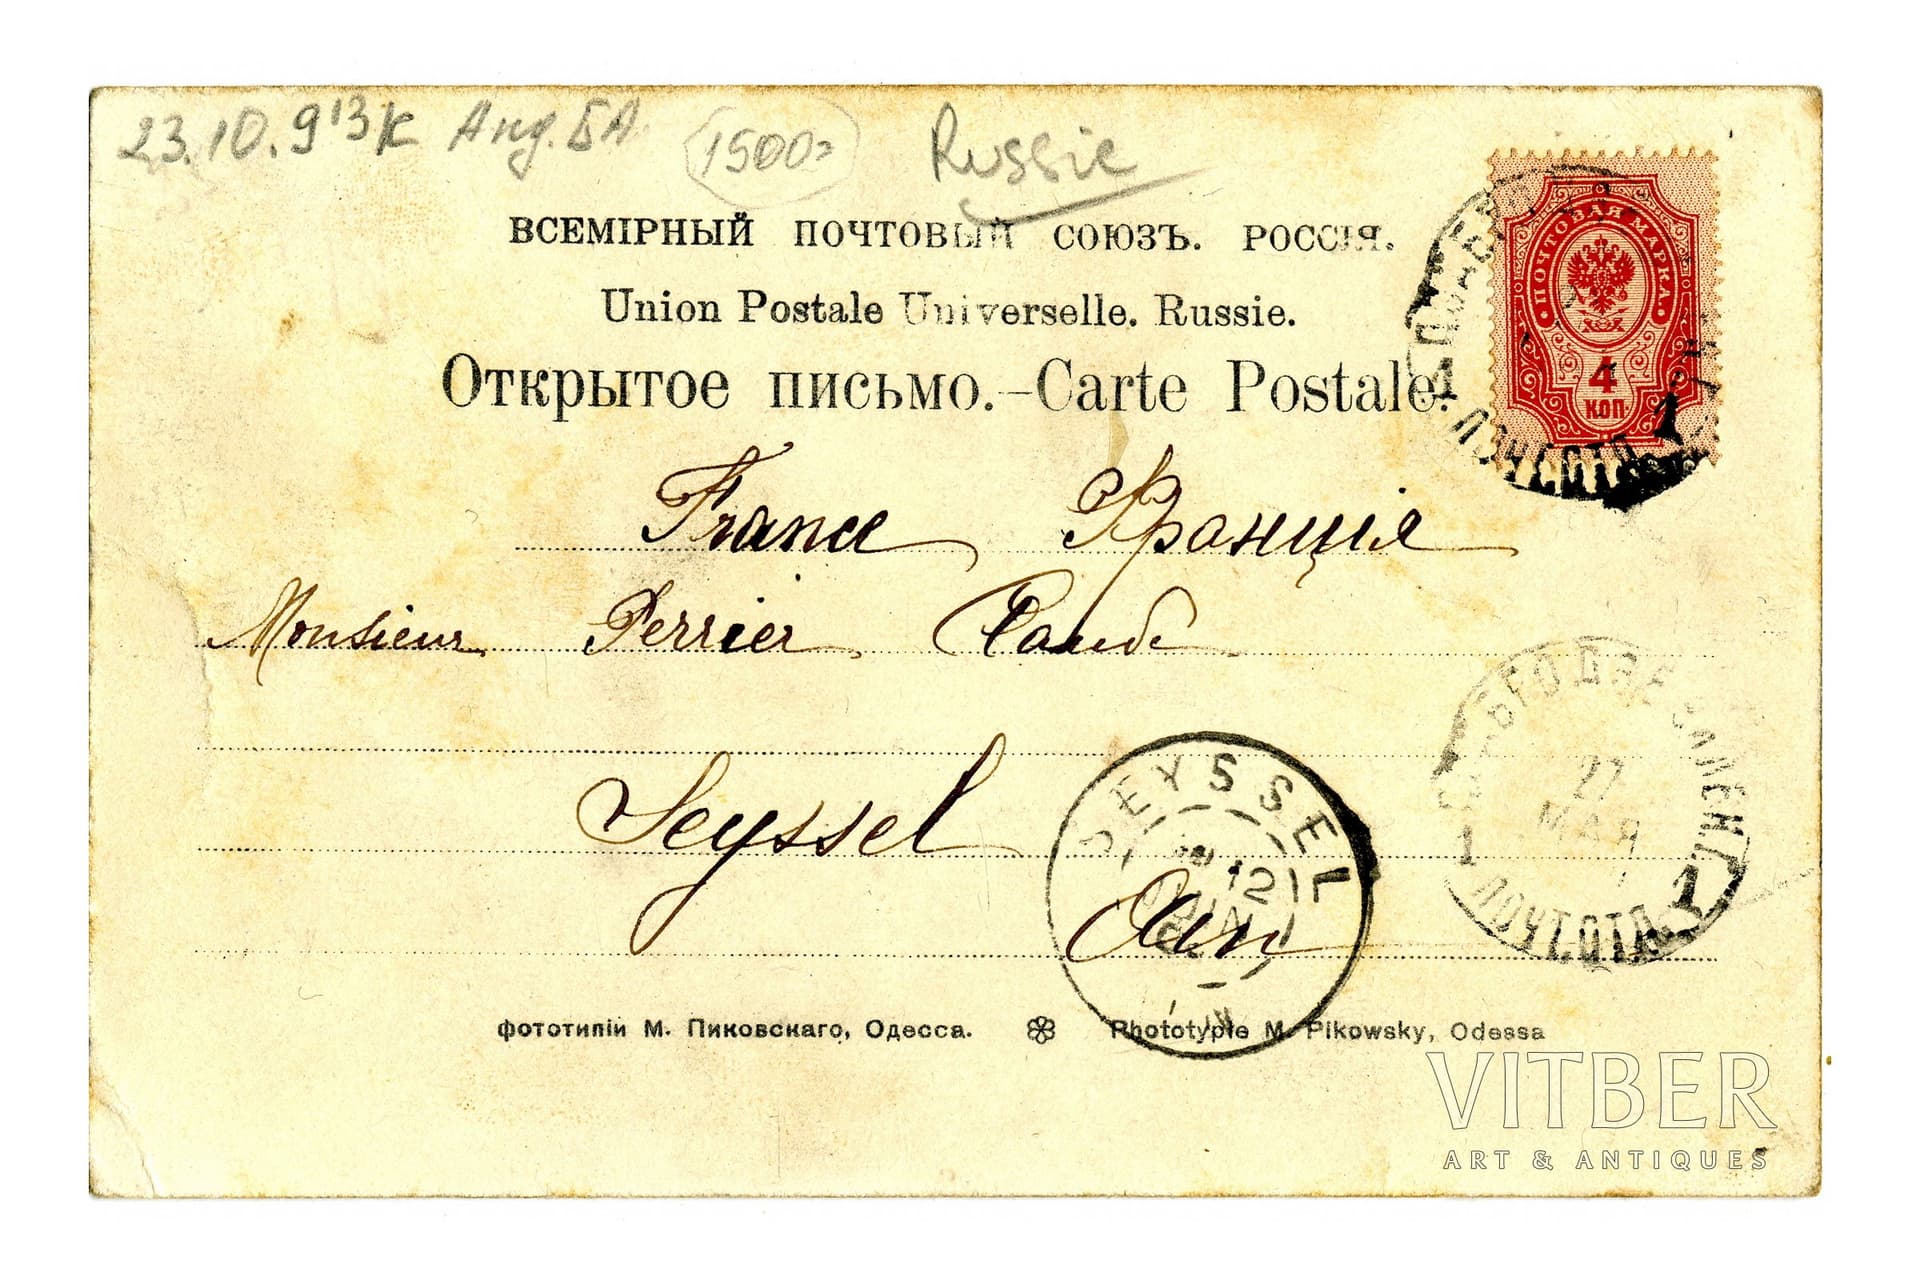 23.10.913к Анд. БА 1500= Russie
ВСЕМІРНЫЙ ПОЧТОВЫЙ СОЮЗЪ. РОССІЯ.
Union Postale Universelle. Russie.
Открытое письмо.—Carte Postale.
ПОЧТОВАЯ МАРКА
4
КОП.
1 1
France Франція
Monsieur Perrier Claude
Seyssel
Ain
SEYSSEL
12
JUIN
27
МАЯ
1 1
фототипіи М. Пиковскаго, Одесса. Phototypie M. Pikowsky, Odessa
VITBER
ART & ANTIQUES